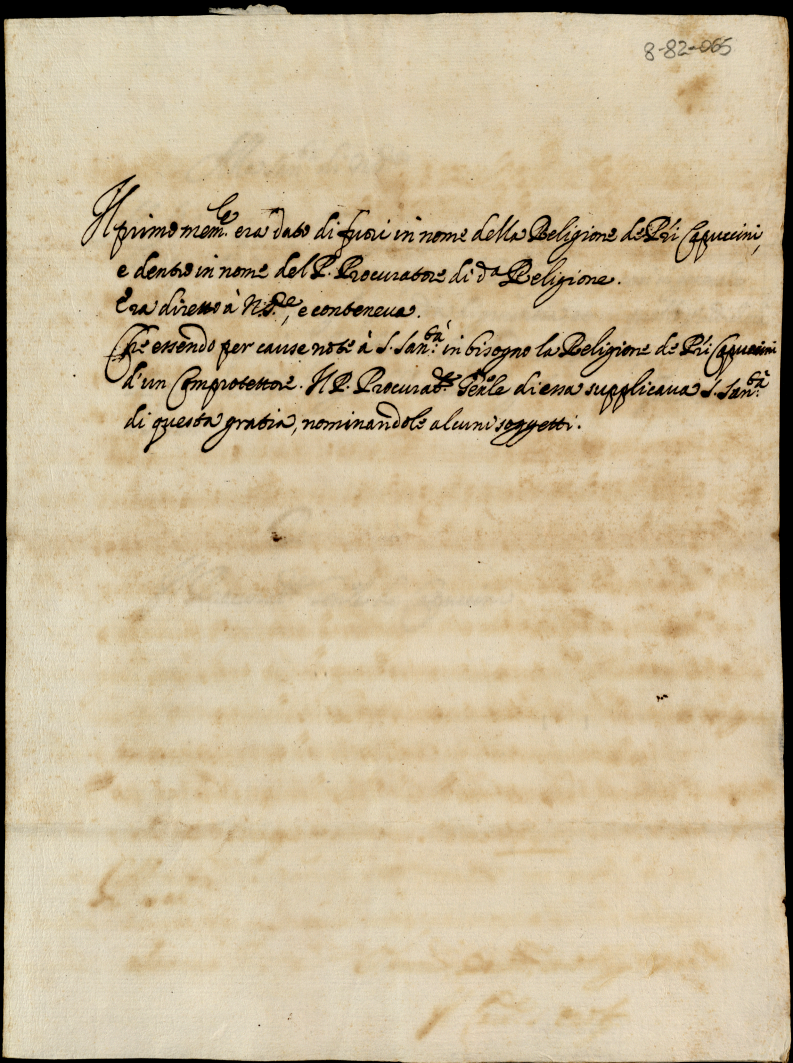 8-82-065
Il primo mem.le era dato di fuori in nome della Religione de PP.ri Capuccini,
e dentro in nome del P. Procuratore di d.a Religione.
Era diretto à N. S.re, e conteneva.
Che essendo per cause note à S. San.tà in bisogno la Religione de PP.ri Capuccini
d'un Comprotettore. Il P. Procurad.re Gen̄ale di essa supplicaua S. San.tà
di questa gratia, nominandole alcuni soggetti.